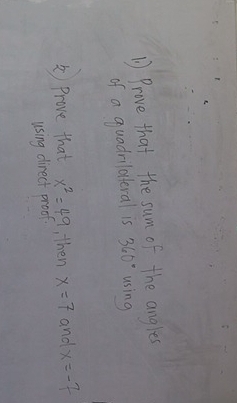 1.) Prove that the sum of the angles
of a quadrilateral is 360° using
2.) Prove that x² = 49, then x = 7 and x = -7
using direct proof.